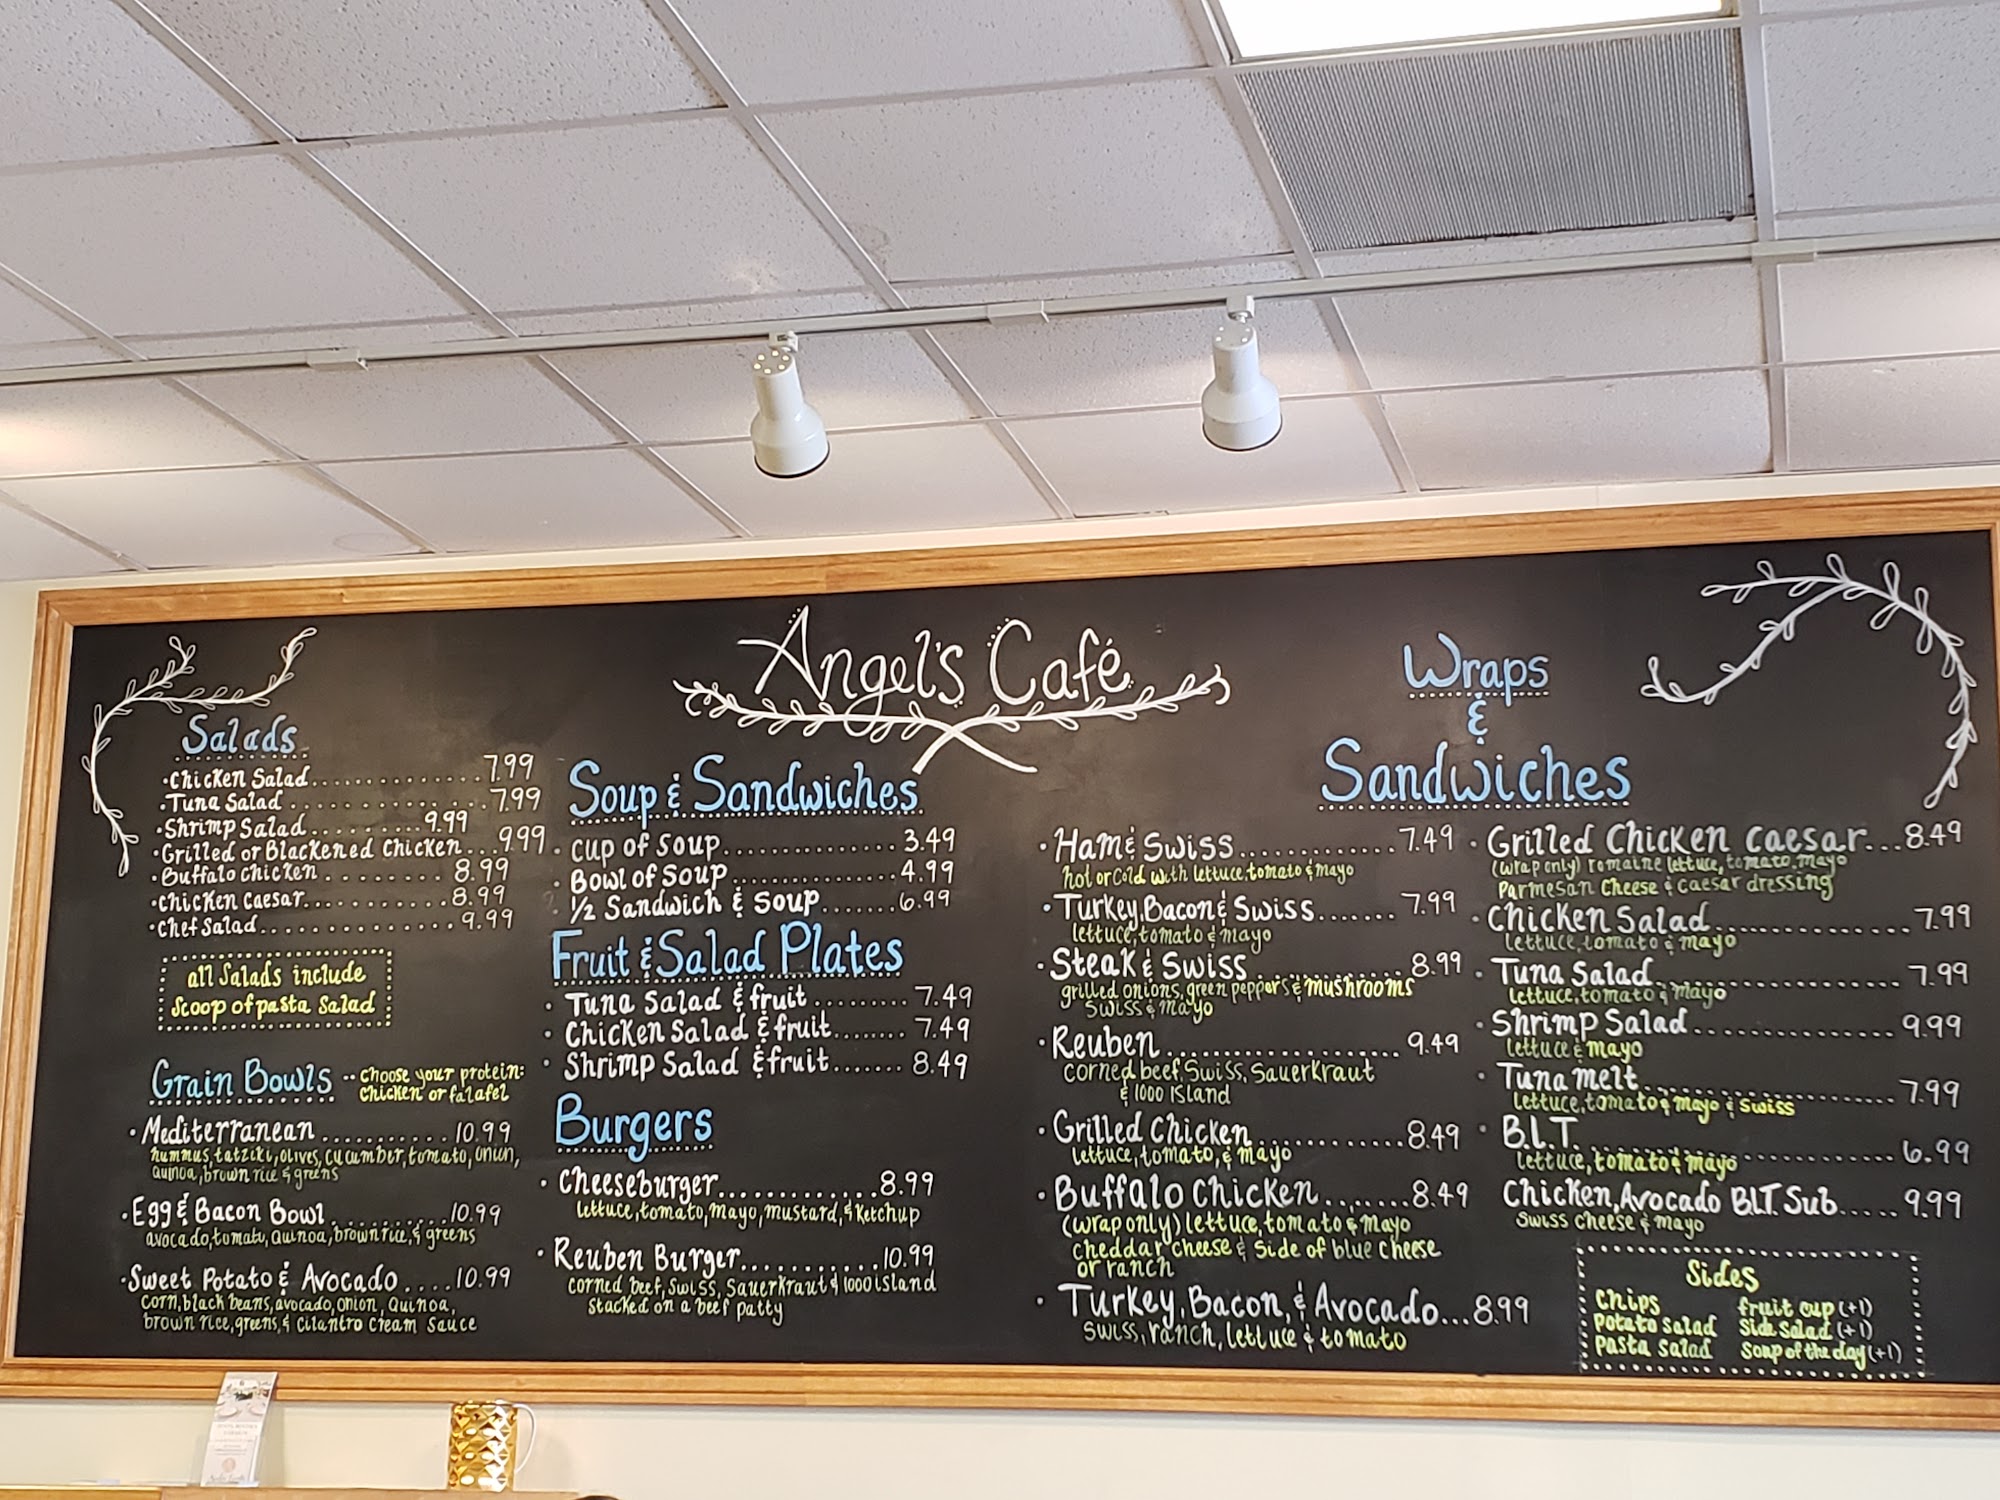 Angel's Café
Salads
• Chicken Salad.............7.99
• Tuna Salad...............7.99
• Shrimp Salad.........9.99
• Grilled or Blackened Chicken...9.99
• Buffalo Chicken.........8.99
• Chicken Caesar...........8.99
• Chef Salad..............9.99
all Salads include
Scoop of pasta Salad
Grain Bowls .. Choose your protein:
Chicken or falafel
• Mediterranean...........10.99
hummus, tatziki, olives, cucumber, tomato, onion,
Quinoa, brown rice & greens
• Egg & Bacon Bowl.........10.99
avocado, tomato, Quinoa, brown rice, & greens
• Sweet Potato & Avocado....10.99
corn, black beans, avocado, onion, Quinoa,
brown rice, greens, & cilantro cream sauce
Soup & Sandwiches
• Cup of Soup...............3.49
• Bowl of Soup..............4.99
• ½ Sandwich & Soup.......6.99
Fruit & Salad Plates
• Tuna Salad & fruit.........7.49
• Chicken Salad & fruit.......7.49
• Shrimp Salad & fruit.......8.49
Burgers
• Cheeseburger............8.99
lettuce, tomato, mayo, mustard, & ketchup
• Reuben Burger..........10.99
corned beef, Swiss, Sauerkraut & 1000 island
stacked on a beef patty
Wraps
&
Sandwiches
• Ham & Swiss.............7.49
hot or cold with lettuce, tomato & mayo
• Turkey, Bacon & Swiss.......7.99
lettuce, tomato & mayo
• Steak & Swiss............8.99
grilled onions, green peppers & mushrooms
Swiss & mayo
• Reuben...................9.49
corned beef, Swiss, Sauerkraut
& 1000 Island
• Grilled Chicken............8.49
lettuce, tomato, & mayo
• Buffalo Chicken........8.49
(wrap only) lettuce, tomato & mayo
cheddar cheese & side of blue cheese
or ranch
• Turkey, Bacon, & Avocado...8.99
Swiss, ranch, lettuce & tomato
• Grilled Chicken Caesar...8.49
(wrap only) romaine lettuce, tomato, mayo
Parmesan Cheese & caesar dressing
• Chicken Salad...............7.99
lettuce, tomato & mayo
• Tuna Salad..................7.99
lettuce, tomato & mayo
• Shrimp Salad...............9.99
lettuce & mayo
• Tuna Melt..................7.99
lettuce, tomato & mayo & swiss
• B.L.T......................6.99
lettuce, tomato & mayo
Chicken, Avocado B.L.T. Sub.....9.99
Swiss cheese & mayo
Sides
Chips fruit cup (+1)
Potato Salad Side Salad (+1)
Pasta Salad Soup of the day (+1)